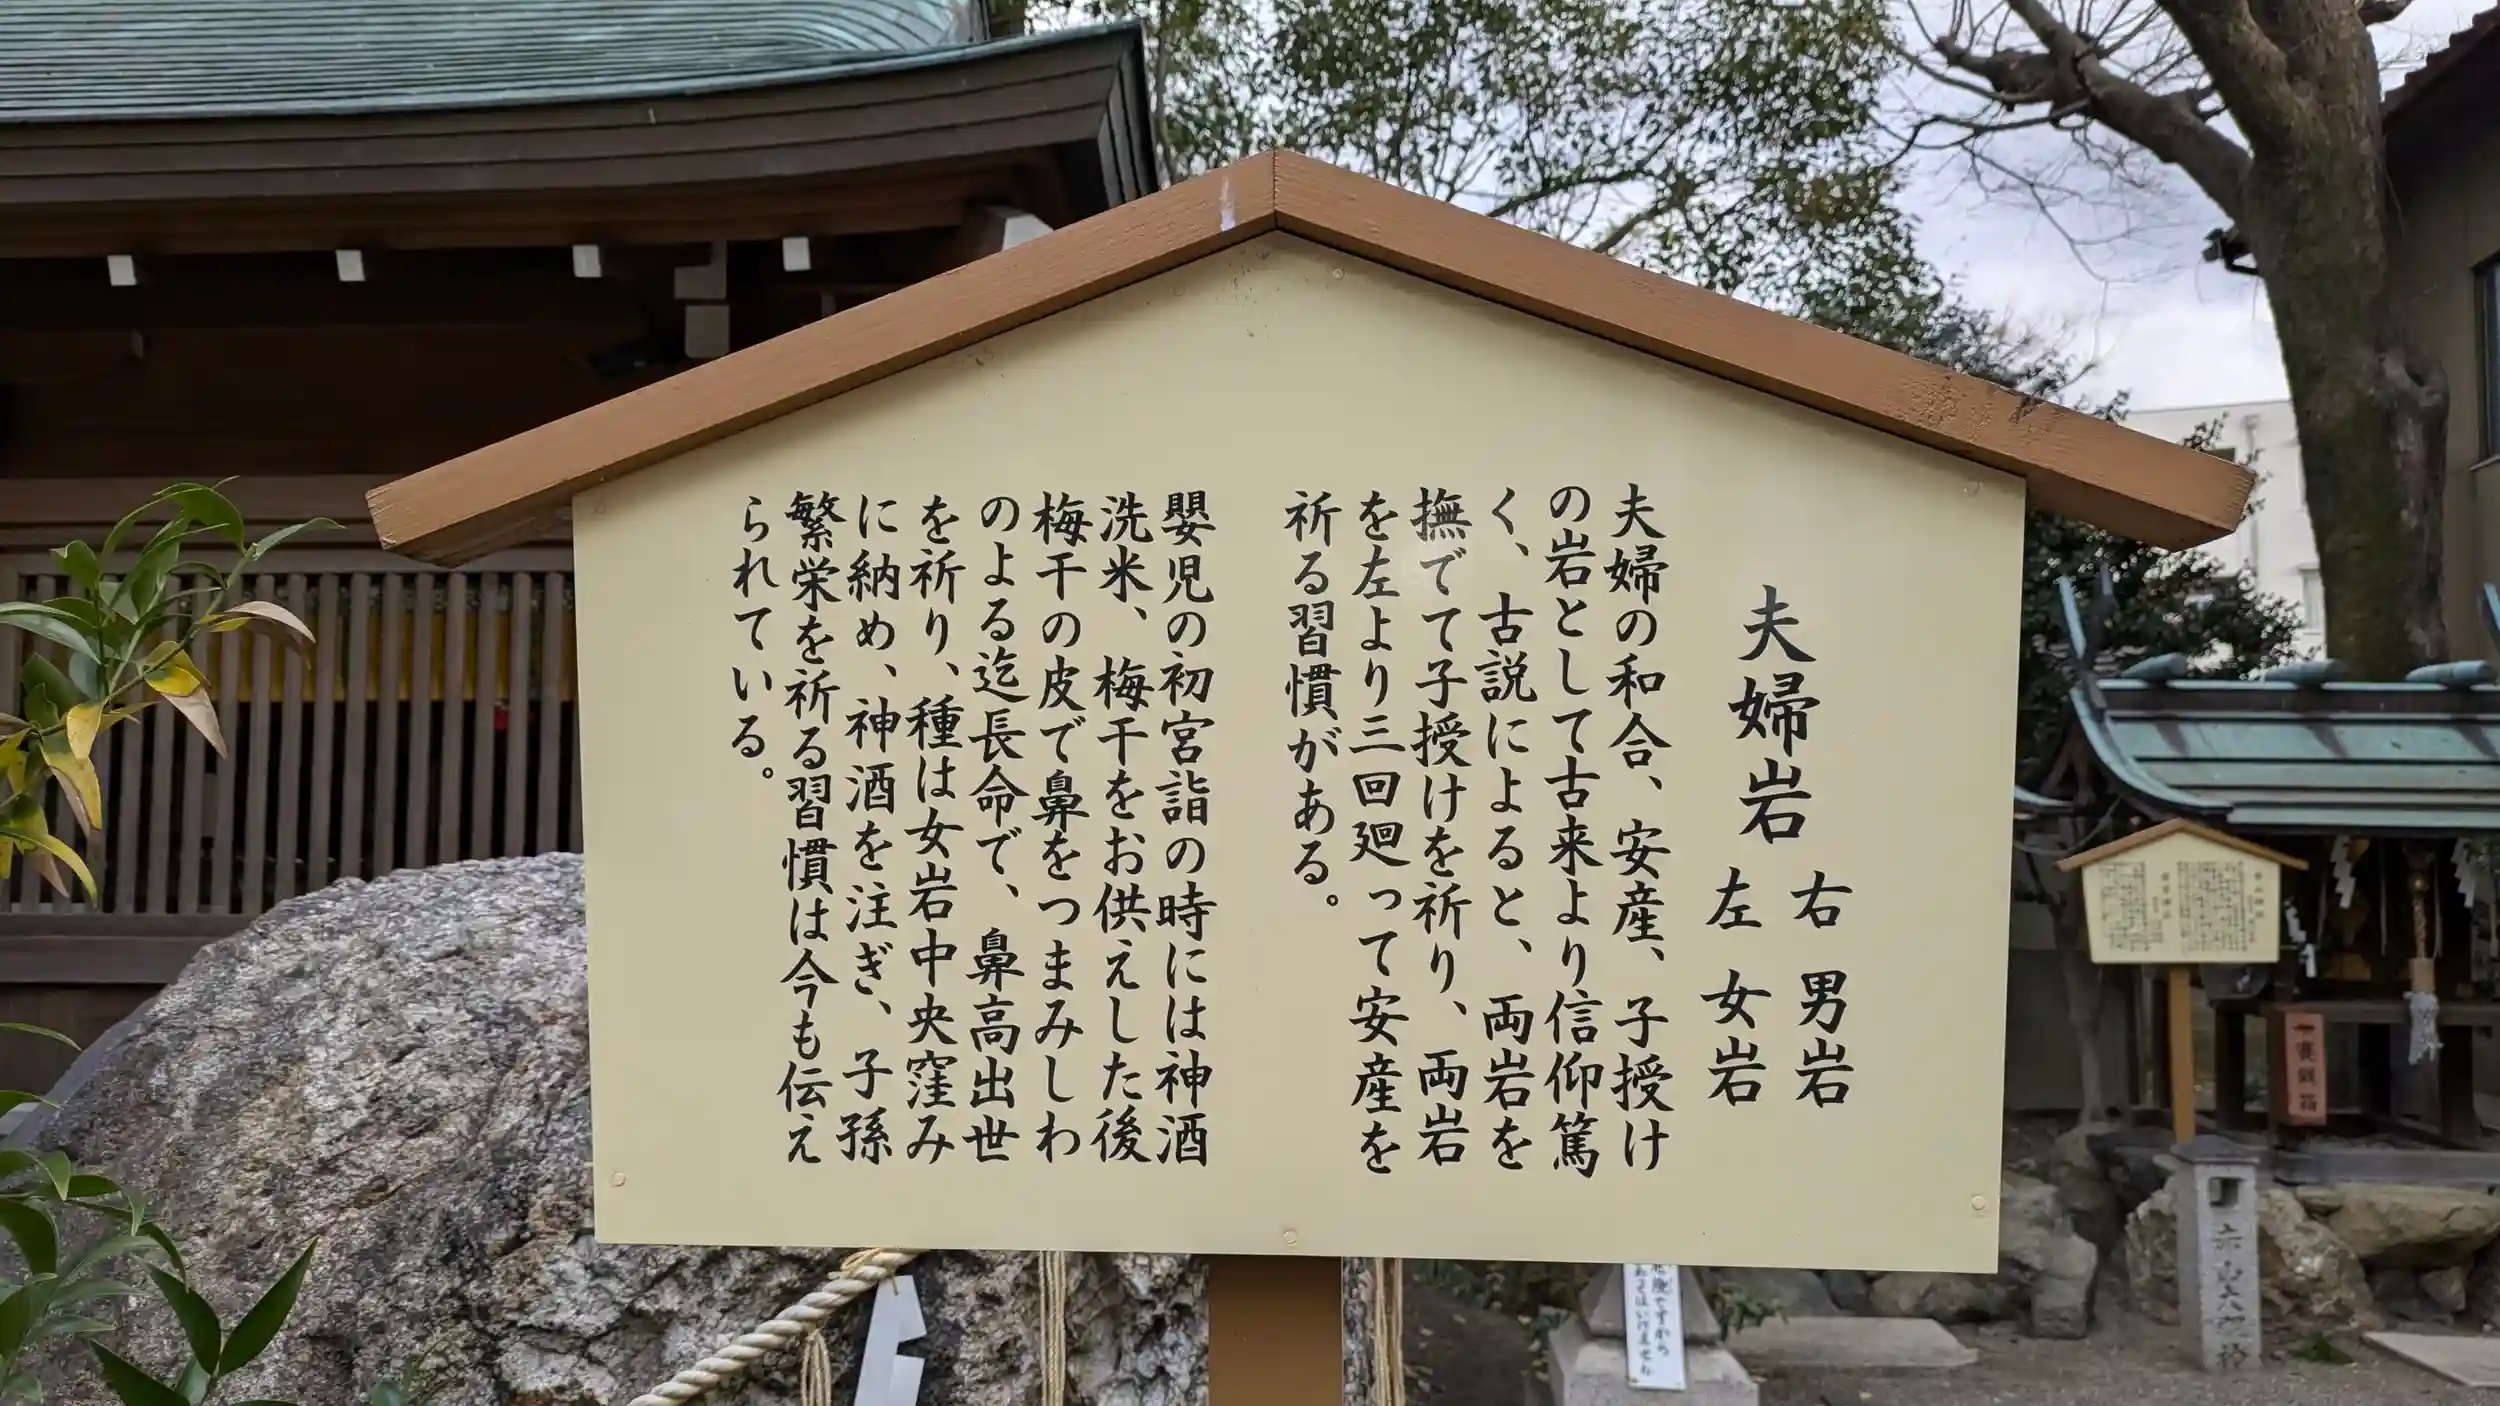 夫婦岩
右 男岩
左 女岩
夫婦の和合、安産、子授け
の岩として古来より信仰篤
く、古説によると、両岩を
撫でて子授けを祈り、両岩
を左より三回廻って安産を
祈る習慣がある。
嬰児の初宮詣の時には神酒
洗米、梅干をお供えした後
梅干の皮で鼻をつまみしわ
のよる迄長命で、鼻高出世
を祈り、種は女岩中央窪み
に納め、神酒を注ぎ、子孫
繁栄を祈る習慣は今も伝え
られている。